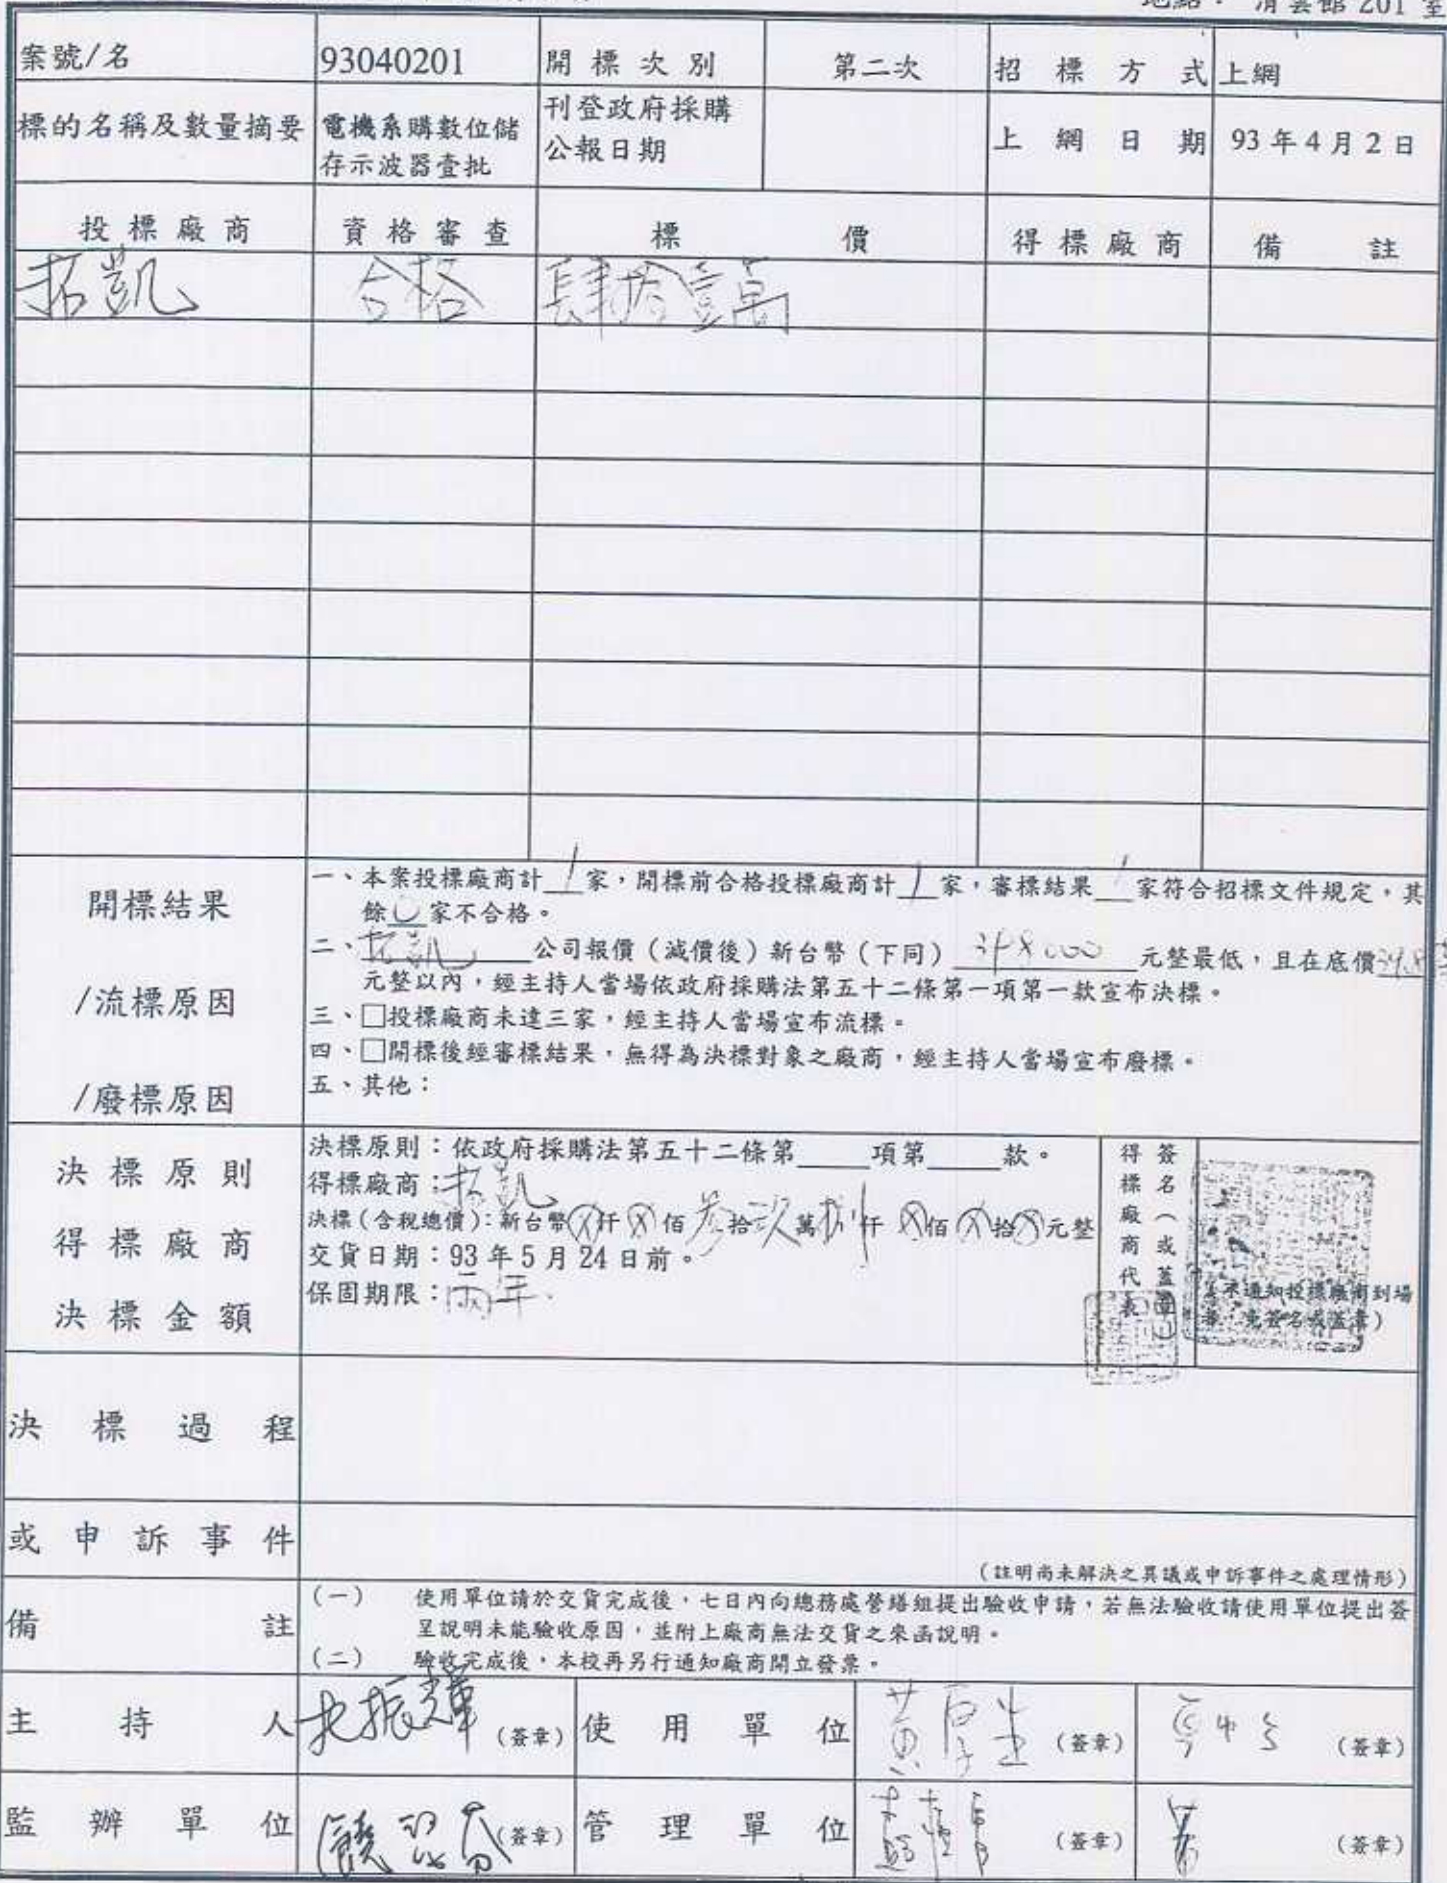 地點： 清雲館 201 室
案號/名 93040201 開標次別 第二次 招標方式 上網
標的名稱及數量摘要 電機系購數位儲存示波器壹批 刊登政府採購公報日期 上網日期 93 年 4 月 2 日
投標廠商 資格審查 標價 得標廠商 備註
拓凱 合格 肆拾壹萬
開標結果
/流標原因
/廢標原因
一、本案投標廠商計 1 家，開標前合格投標廠商計 1 家，審標結果 1 家符合招標文件規定，其
餘 0 家不合格。
二、拓凱 公司報價（減價後）新台幣（下同） 398000 元整最低，且在底價
元整以內，經主持人當場依政府採購法第五十二條第一項第一款宣布決標。
三、□投標廠商未達三家，經主持人當場宣布流標。
四、□開標後經審標結果，無得為決標對象之廠商，經主持人當場宣布廢標。
五、其他：
決標原則
得標廠商
決標金額
決標原則：依政府採購法第五十二條第____項第____款。
得標廠商：拓凱
決標(含稅總價)：新台幣Ⓧ仟Ⓧ佰參拾玖萬捌仟Ⓧ佰Ⓧ拾Ⓧ元整
交貨日期：93 年 5 月 24 日前。
保固期限：兩年.
得標廠商代表
簽名（或蓋章）
（不通知投標廠商到場
者，免簽名或蓋章）
決標過程
或申訴事件
（註明尚未解決之異議或申訴事件之處理情形）
備註
（一） 使用單位請於交貨完成後，七日內向總務處營繕組提出驗收申請，若無法驗收請使用單位提出簽
呈說明未能驗收原因，並附上廠商無法交貨之來函說明。
（二） 驗收完成後，本校再另行通知廠商開立發票。
主持人 (簽章) 使用單位 (簽章) (簽章)
監辦單位 (簽章) 管理單位 (簽章) (簽章)